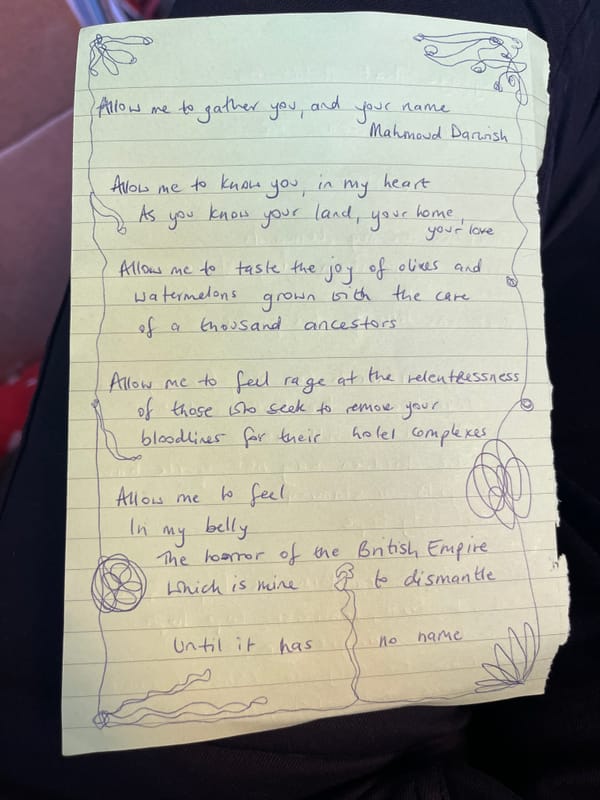 Allow me to gather you, and your name
Mahmoud Darwish
Allow me to know you, in my heart
As you know your land, your home,
your love
Allow me to taste the joy of olives and
watermelons grown with the care
of a thousand ancestors
Allow me to feel rage at the relentlessness
of those who seek to remove your
bloodlines for their hotel complexes
Allow me to feel
In my belly
The horror of the British Empire
Which is mine to dismantle
Until it has no name